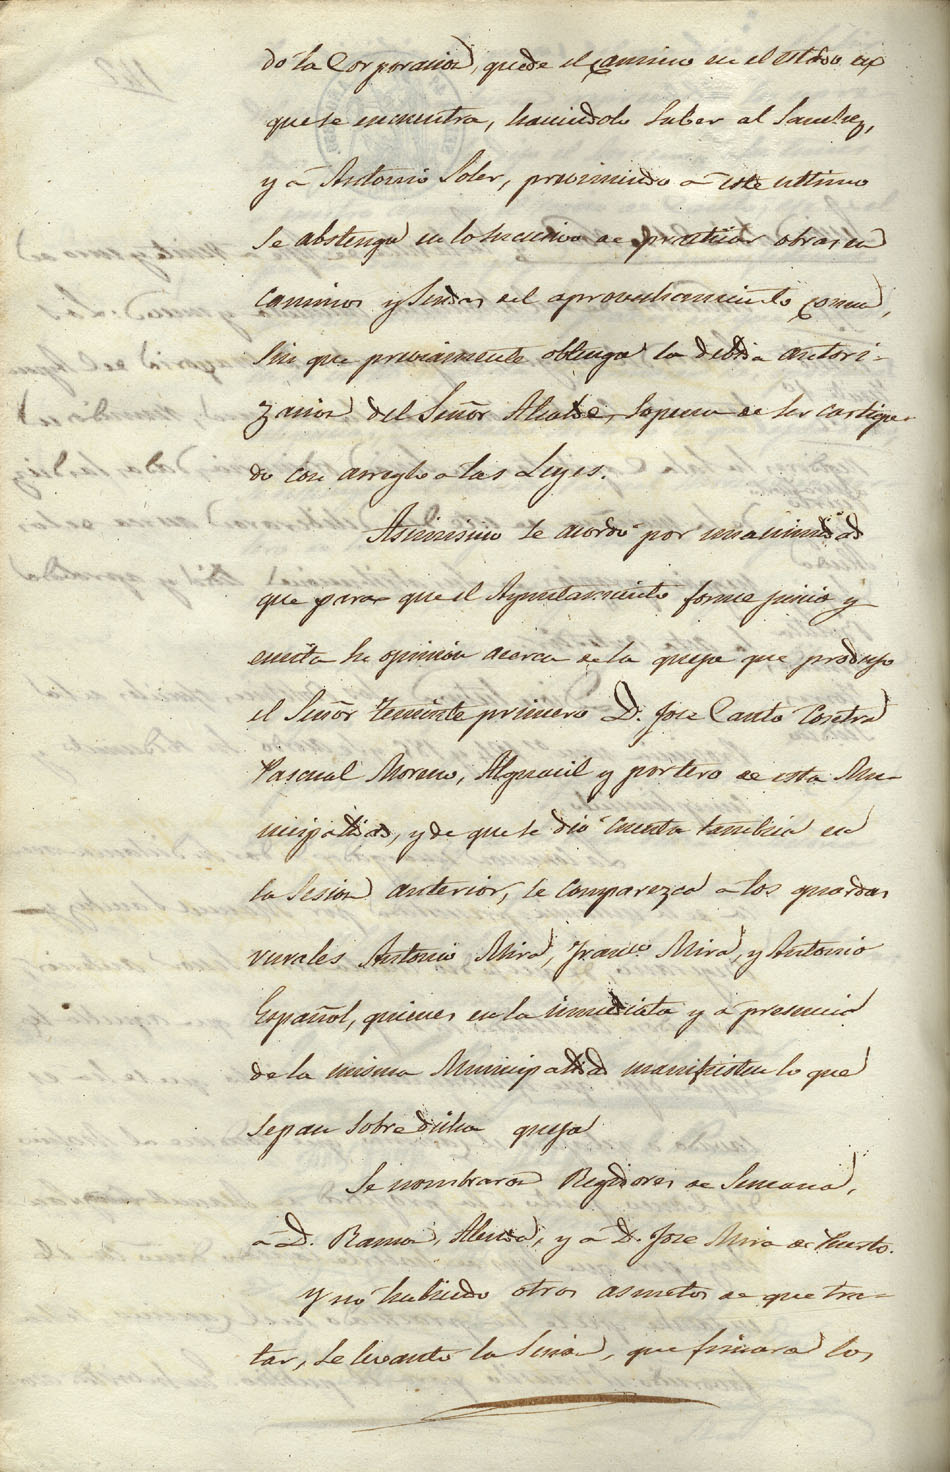 do la Corporacion, quede el camino en el estado en
que se encuentra, haciendolo saber al Sanchez,
y á Antonio Soler, previniendo á este ultimo
se abstenga en lo sucesivo de practicar obras en
caminos y sendas del aprovechamiento comun,
sin que previamente obtenga la debida autori-
zacion del Señor Alcalde, so pena de ser castiga-
do con arreglo a las Leyes.
Asimismo se acordó por unanimidad
que para que el Ayuntamiento forme juicio y
emita su opinion acerca de la queja que produjo
el Señor Teniente primero D. Jose Cantó contra
Pascual Moreno, Alguacil y portero de esta Mu-
nicipalidad, y de que se dió cuenta tambien en
la Sesion anterior, se comparezca a los guardas
rurales Antonio Mira, Franco. Mira, y Antonio
Español, quienes en la inmediata y á presencia
de la misma Municipalidad manifiesten lo que
sepan sobre dicha queja
Se nombraron Regidores de Semana,
á D. Ramon Alenda, y á D. Jose Mira de Huerto.
Y no habiendo otros asuntos de que tra-
tar, se levantó la Sesion, que firmara los